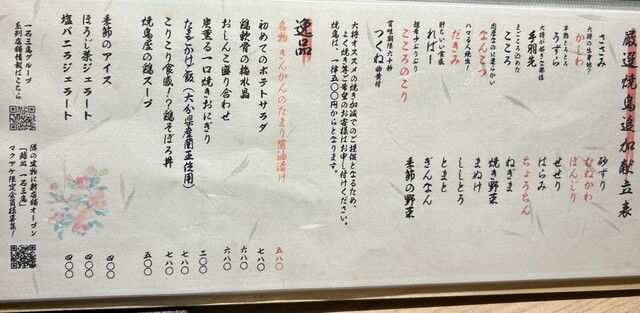 厳選焼鳥追加献立表
ささみ
大将の生身好き!
かしわ
半熟とろとろ
うずら
大将が好きな部位
手羽先
まごころのこった
こころ
肉屋なのに柔らかい
なんこつ
ハマる人続出!
だきみ
肝ちいい食感
ればー
超希少ぷりぷり
こころのこり
賞味期限六十秒
つくね 卵黄付
砂ずり
むねかわ
ぼんじり
せせり
はらみ
ちょうちん
ねぎま
焼き野菜
まぬけ
ししとう
とまと
ぎんなん
季節の野菜
大将オススメの焼き加減でのご提供となるため、
よく焼き等ご希望のお客様はお申し付けください。
焼鳥は、一体五〇〇円からとなります。
逸品
名物 きんかんのたまり醤油漬け 五八〇
初めてのポテトサラダ 七八〇
鶏軟骨の梅水晶 六八〇
おしんこ盛り合わせ 六八〇
炭薫る一口焼きおにぎり 二〇〇
たまごかけ飯(大分県産蘭王使用) 七八〇
こりこり食感!?鶏そぼろ丼 七八〇
焼鳥屋の鶏スープ 五〇〇
季節のアイス 四〇〇
ほうじ茶ジェラート 四〇〇
塩バニラジェラート 四〇〇
一石三鳥グループ
系列店舗情報はこちら
隣の建物に新店舗オープン
「鮨処 一石三鳥」
マクアケ限定会員様募集!